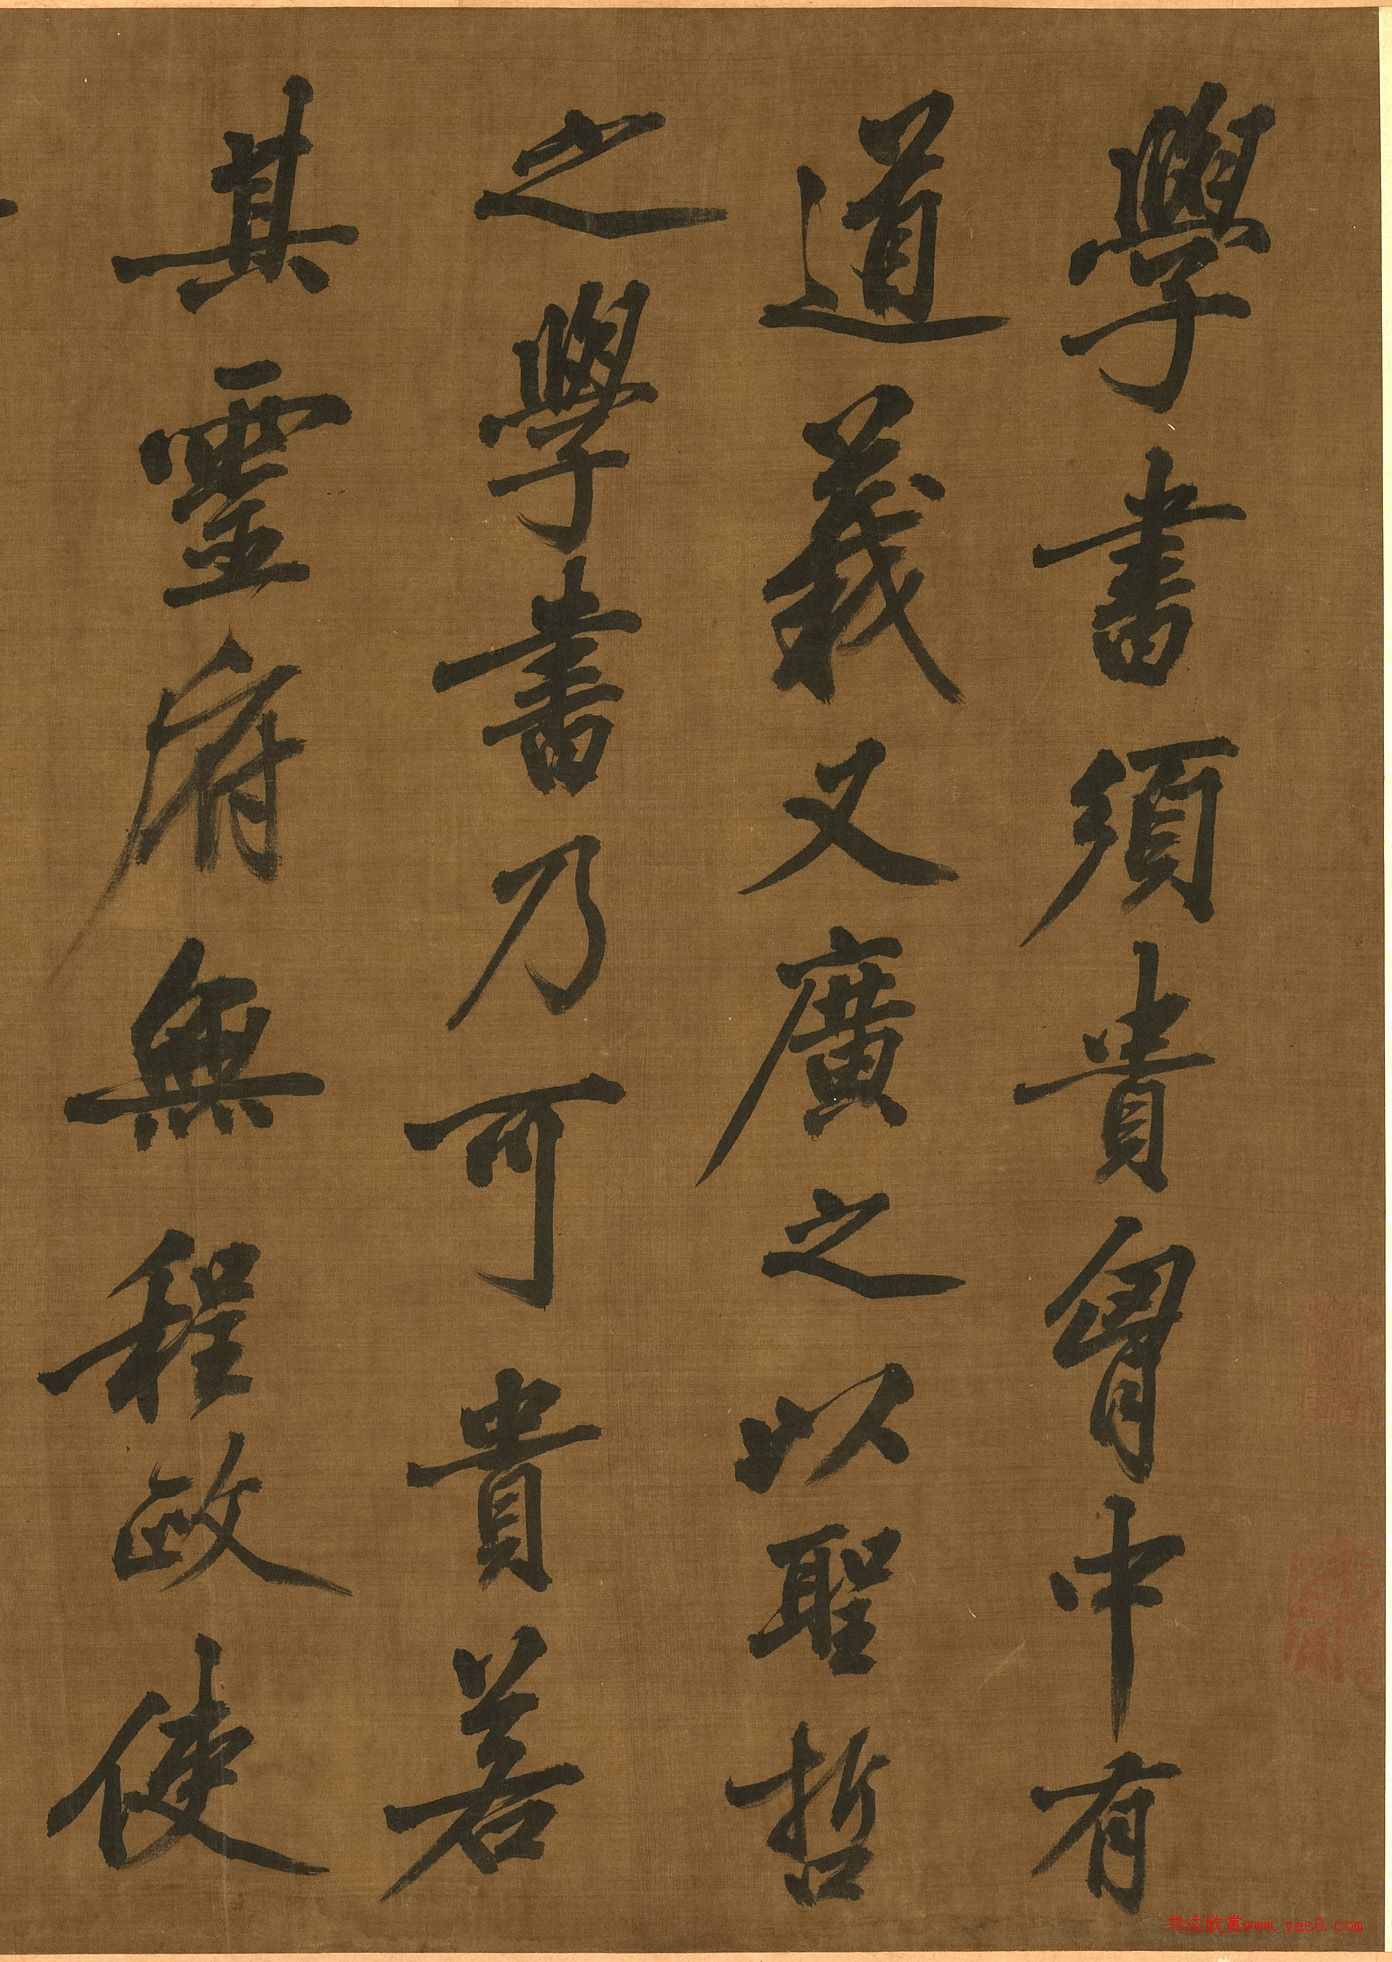 學書須貴胷中有
道義又廣之以聖哲
之學書乃可貴若
其靈府無程政使
书法欣赏www.yac8.com